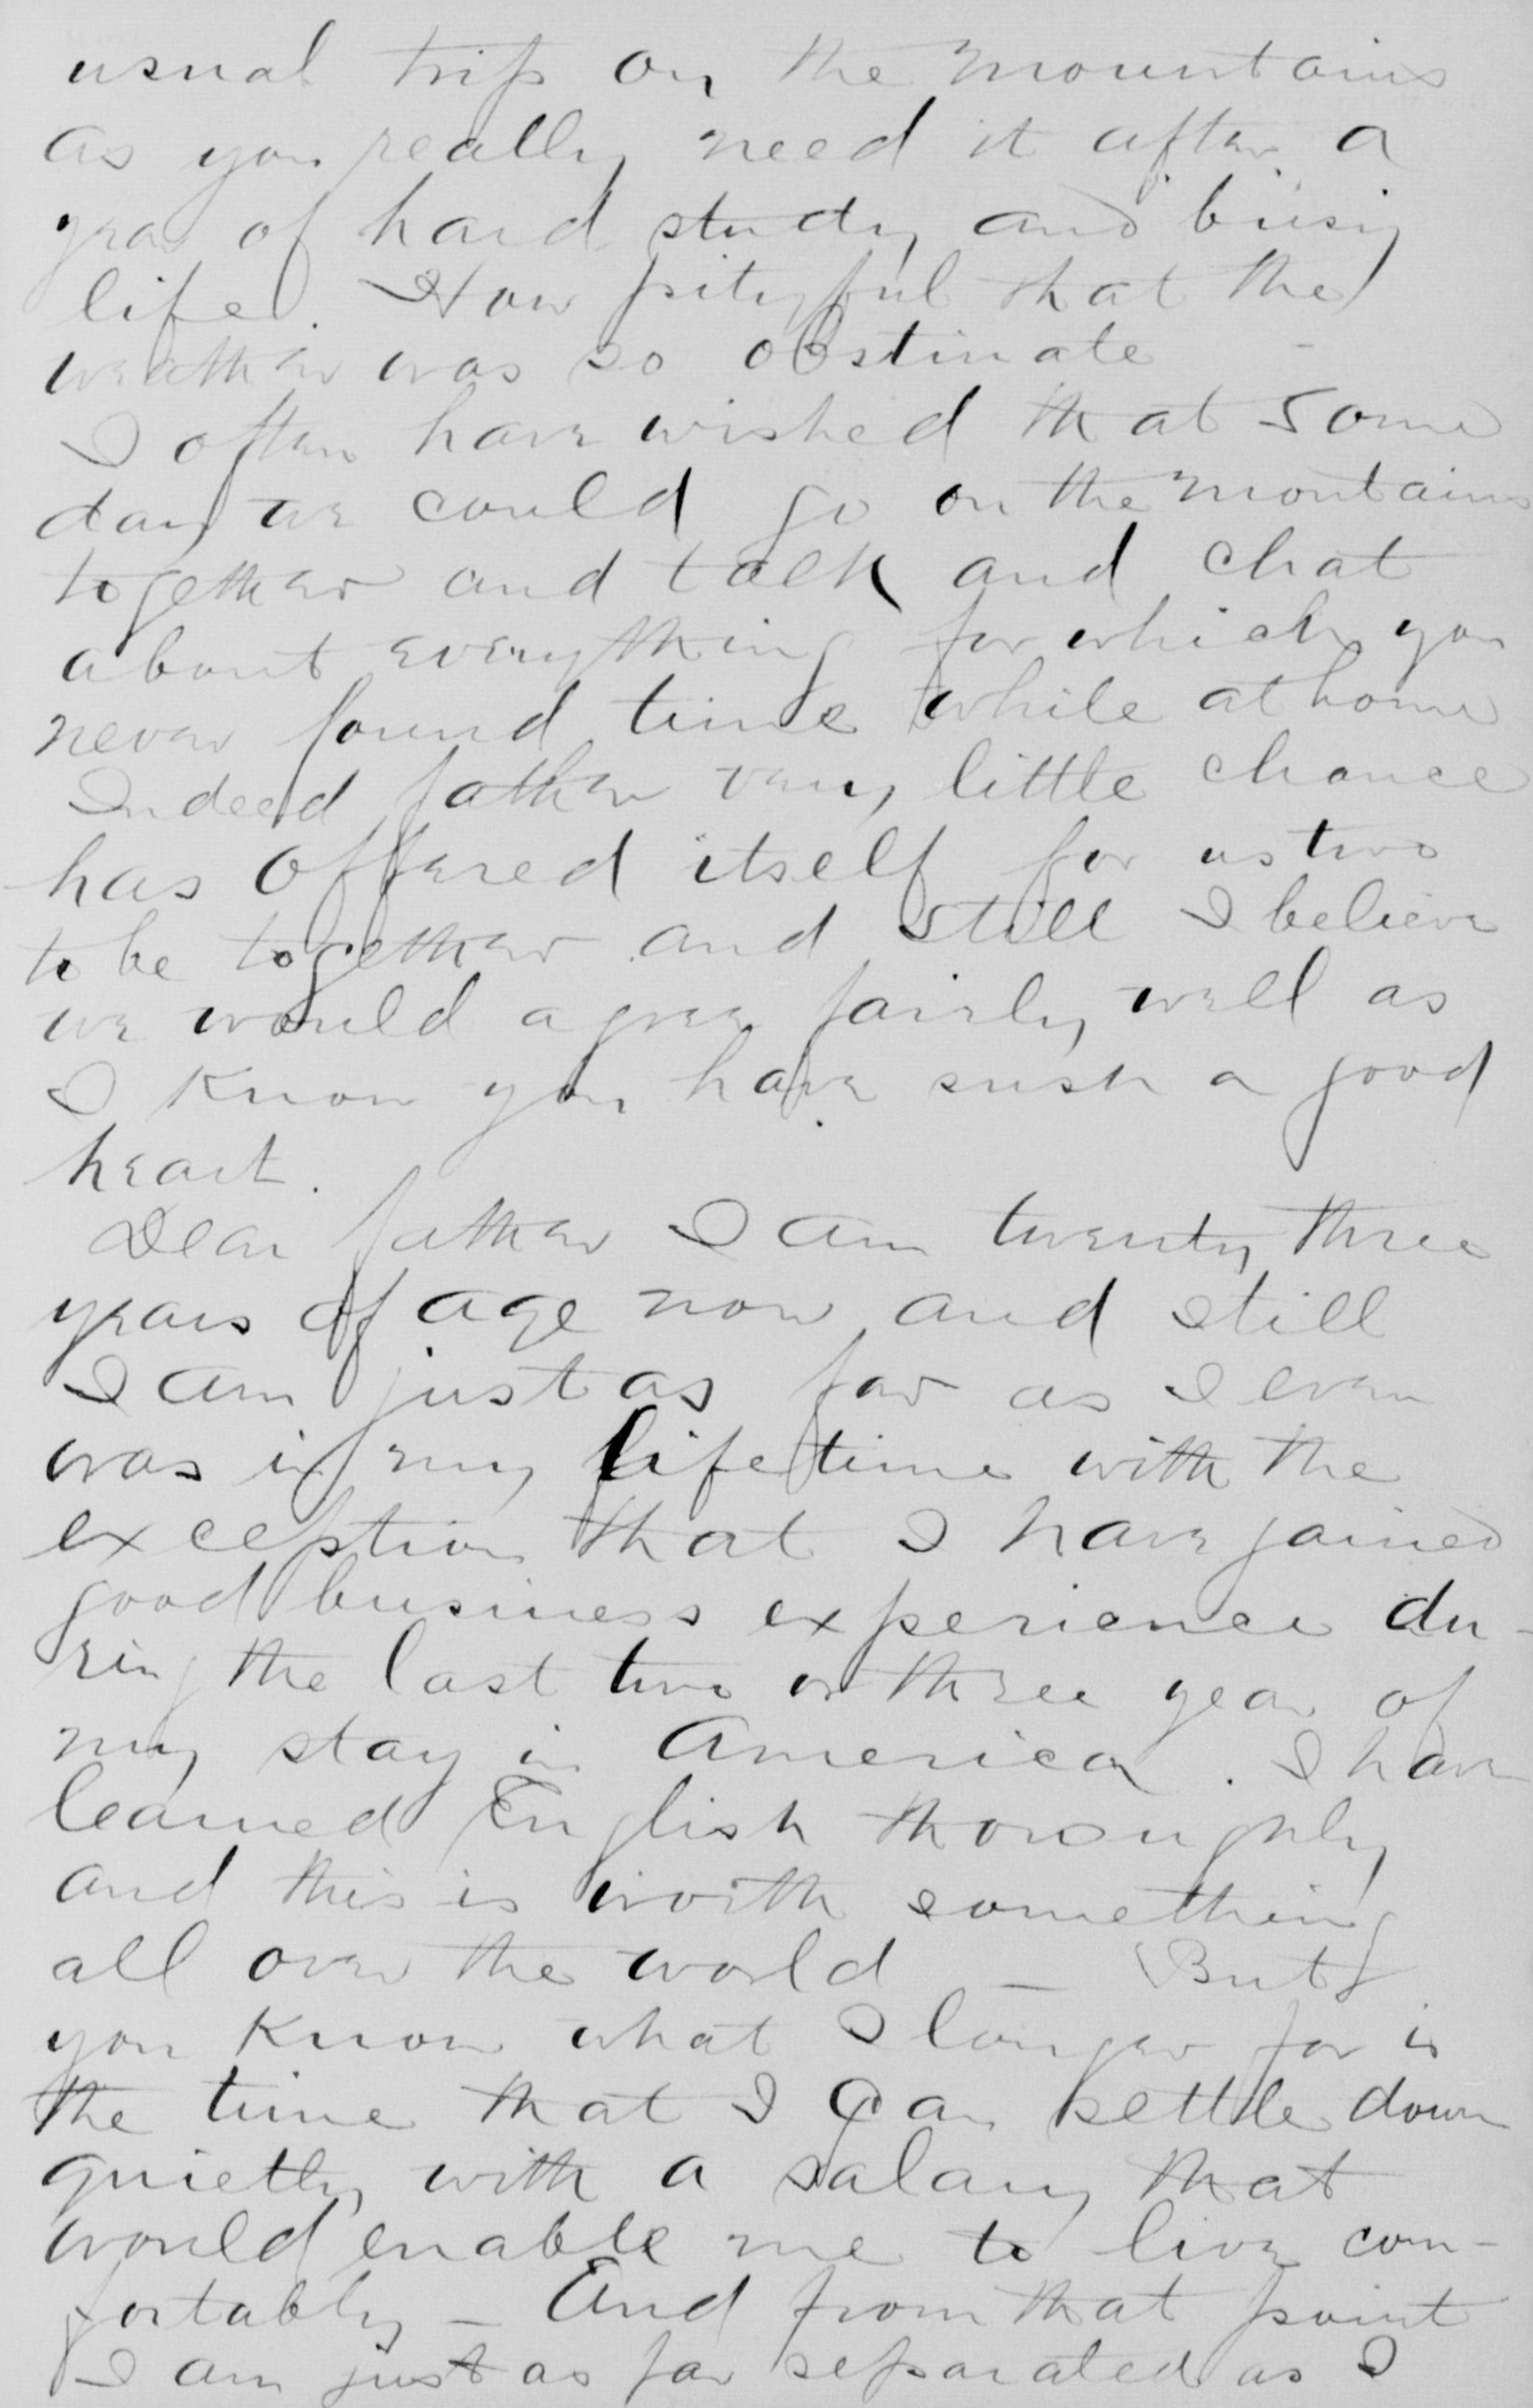 usual trip on the mountains
as you really need it after a
year of hard study and busy
life. How pityful that the
weather was so obstinate -
I often have wished that some
day we could go on the montains
together and talk and chat
about everything for which you
never found time while at home
Indeed father very little chance
has offered itself for us two
to be together and still I believe
we would agree fairly well as
I know you have such a good
heart.
Dear father I am twenty three
years of age now and still
I am just as far as I ever
was in my life time with the
exception that I have gained
good business experience du-
ring the last two or three year of
my stay in America. I have
learned English thoroughly
and this is worth something
all over the world - But
you know what I longer for is
the time that I can settle down
quietly with a salary that
would enable me to live com-
fortably - And from that point
I am just as far separated as I